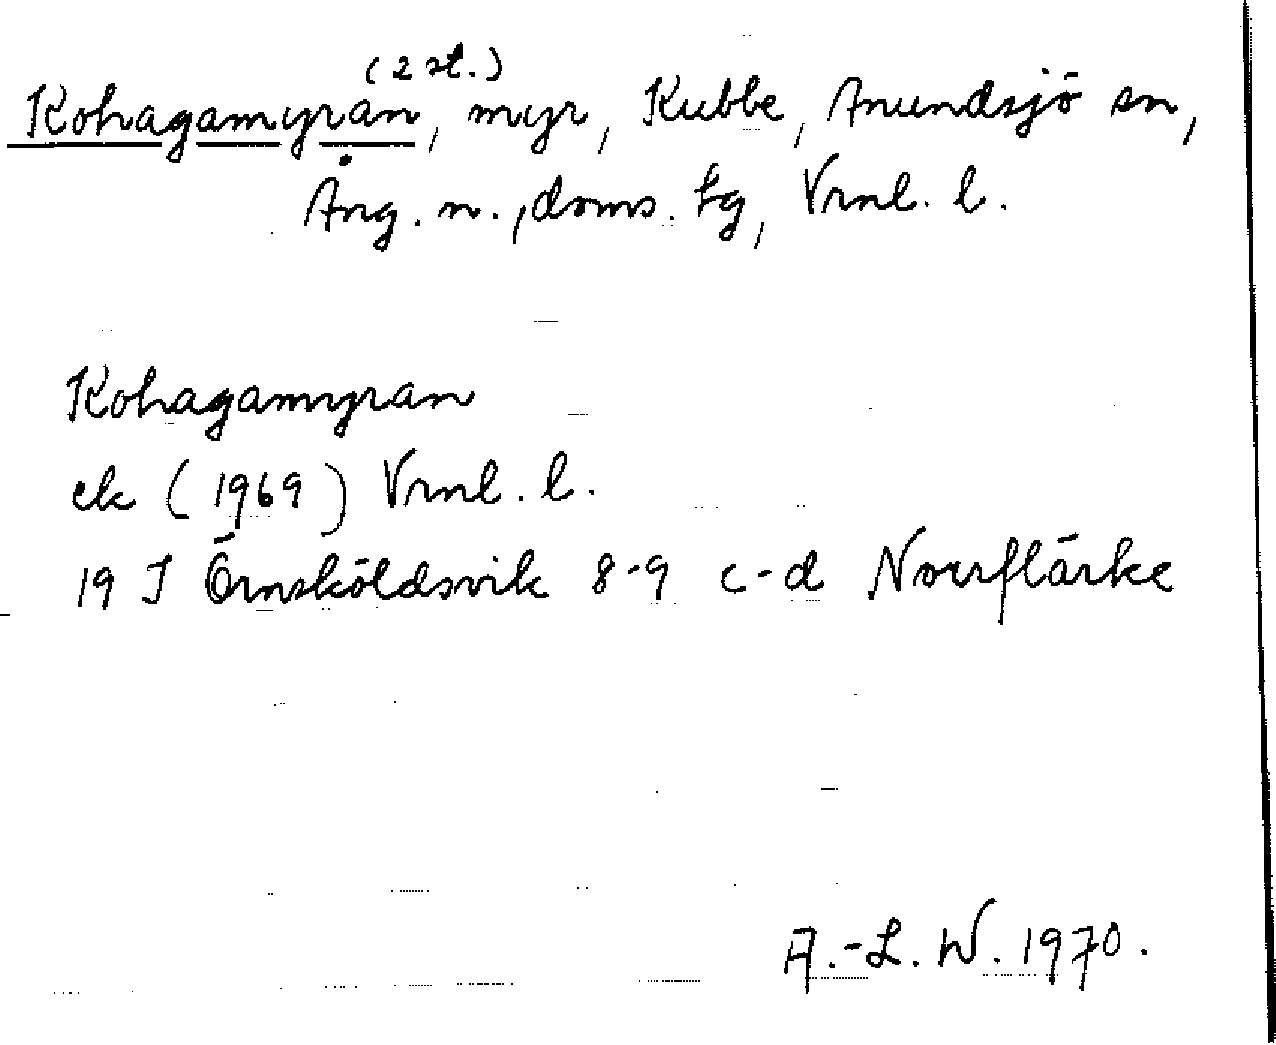 (2 st.)
Kohagamyran, myr, Kubbe, Anundsjö sn,
Ång. n., doms. tg, Vrnl. l.
Kohagamyran
ek (1969) Vrnl. l.
19 J Örnsköldsvik 8-9 c-d Norrflärke
A.-L. W. 1970.